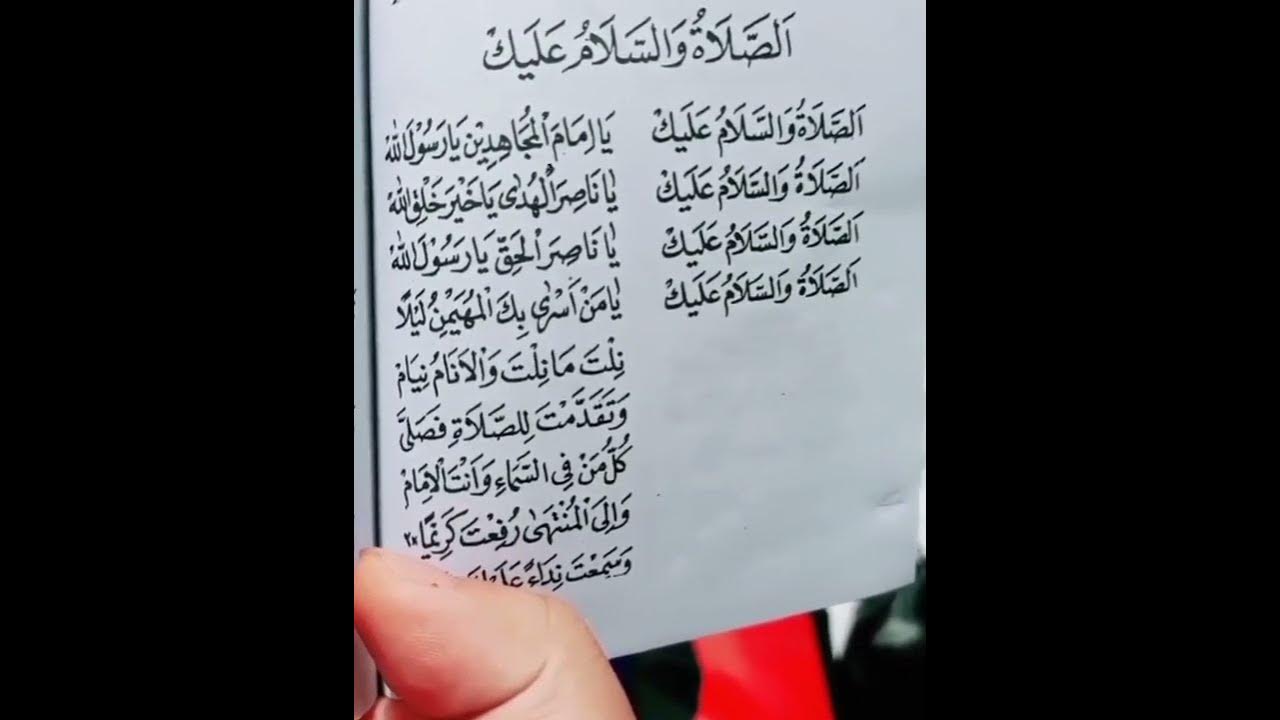 اَلصَّلَاةُ وَالسَّلَامُ عَلَيْكَ
اَلصَّلَاةُ وَالسَّلَامُ عَلَيْكَ يَا اِمَامَ الْمُجَاهِدِيْنَ يَا رَسُوْلَ اللهْ
اَلصَّلَاةُ وَالسَّلَامُ عَلَيْكَ يَا نَاصِرَ الْهُدٰى يَا خَيْرَ خَلْقِ اللهْ
اَلصَّلَاةُ وَالسَّلَامُ عَلَيْكَ يَا نَاصِرَ الْحَقِّ يَا رَسُوْلَ اللهْ
اَلصَّلَاةُ وَالسَّلَامُ عَلَيْكَ يَا مَنْ أَسْرٰى بِكَ الْمُهَيْمِنُ لَيْلًا
نِلْتَ مَا نِلْتَ وَالْاَنَامُ نِيَامْ
وَتَقَدَّمْتَ لِلصَّلَاةِ فَصَلَّى
كُلُّ مَنْ فِى السَّمَاءِ وَاَنْتَ الْاِمَامْ
وَاِلَى الْمُنْتَهٰى رُفِعْتَ كَرِيْمًا ×٢
وَسَمِعْتَ نِدَاءً